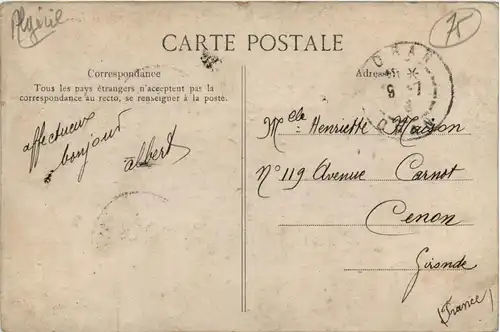 Algérie
75
CARTE POSTALE
Correspondance
Tous les pays étrangers n'acceptent pas la
correspondance au recto, se renseigner à la poste.
affectueux
bonjour
albert
Adresse
ORAN
Mlle Henriette
N° 119 Avenue Carnot
Cenon
Gironde
(France)